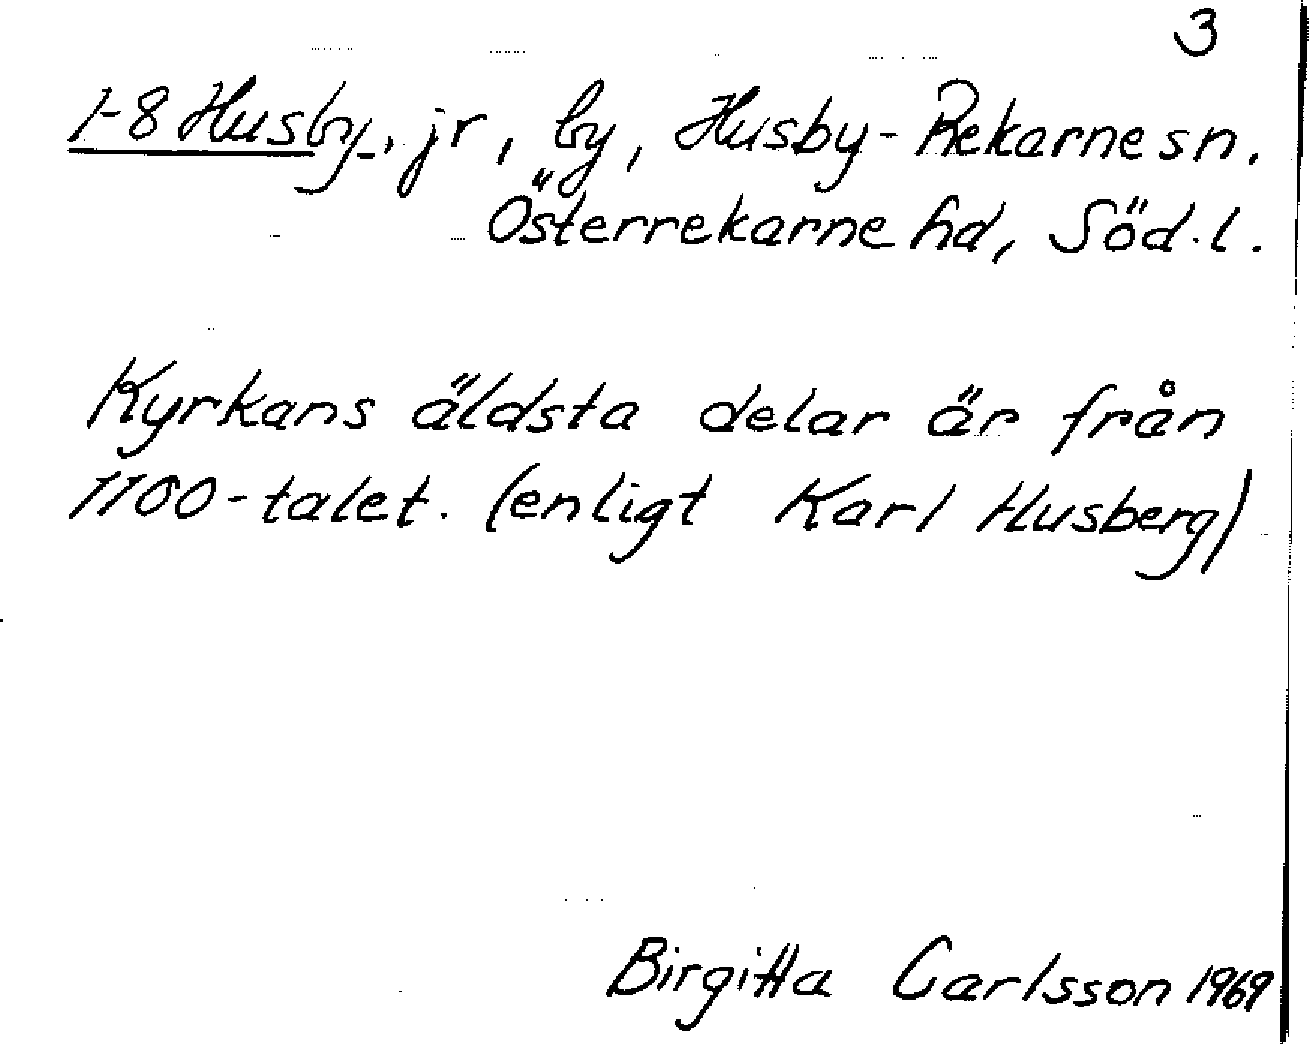 3
1-8 Husby, jr, by, Husby-Rekarne sn.
Österrekarne hd, Söd. l.
Kyrkans äldsta delar är från
1100-talet. (enligt Karl Husberg)
Birgitta Carlsson 1969